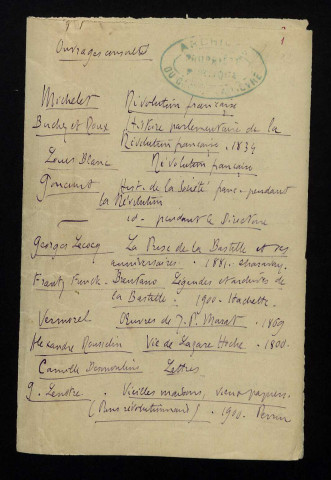 Ouvrages consultés
1
ARCHIVES
Michelet Révolution française
Buchez et Roux Histoire parlementaire de la
Révolution française. 1834
Louis Blanc Révolution français
Goncourt Hist. de la Société franç. pendant
la Révolution
— id - pendant le Directoire
Georges Lecocq La Prise de la Bastille et ses
anniversaires. 1881. Charavay.
Frantz Funck-Brentano Légendes et archives de
la Bastille. 1900. Hachette.
Vermorel Œuvres de J. P. Marat. 1869
Alexandre Rousselin Vie de Lazare Hoche. 1800.
Camille Desmoulins Lettres
G. Lenotre. Vieilles maisons, vieux papiers.
(Paris révolutionnaire). 1900. Perrin